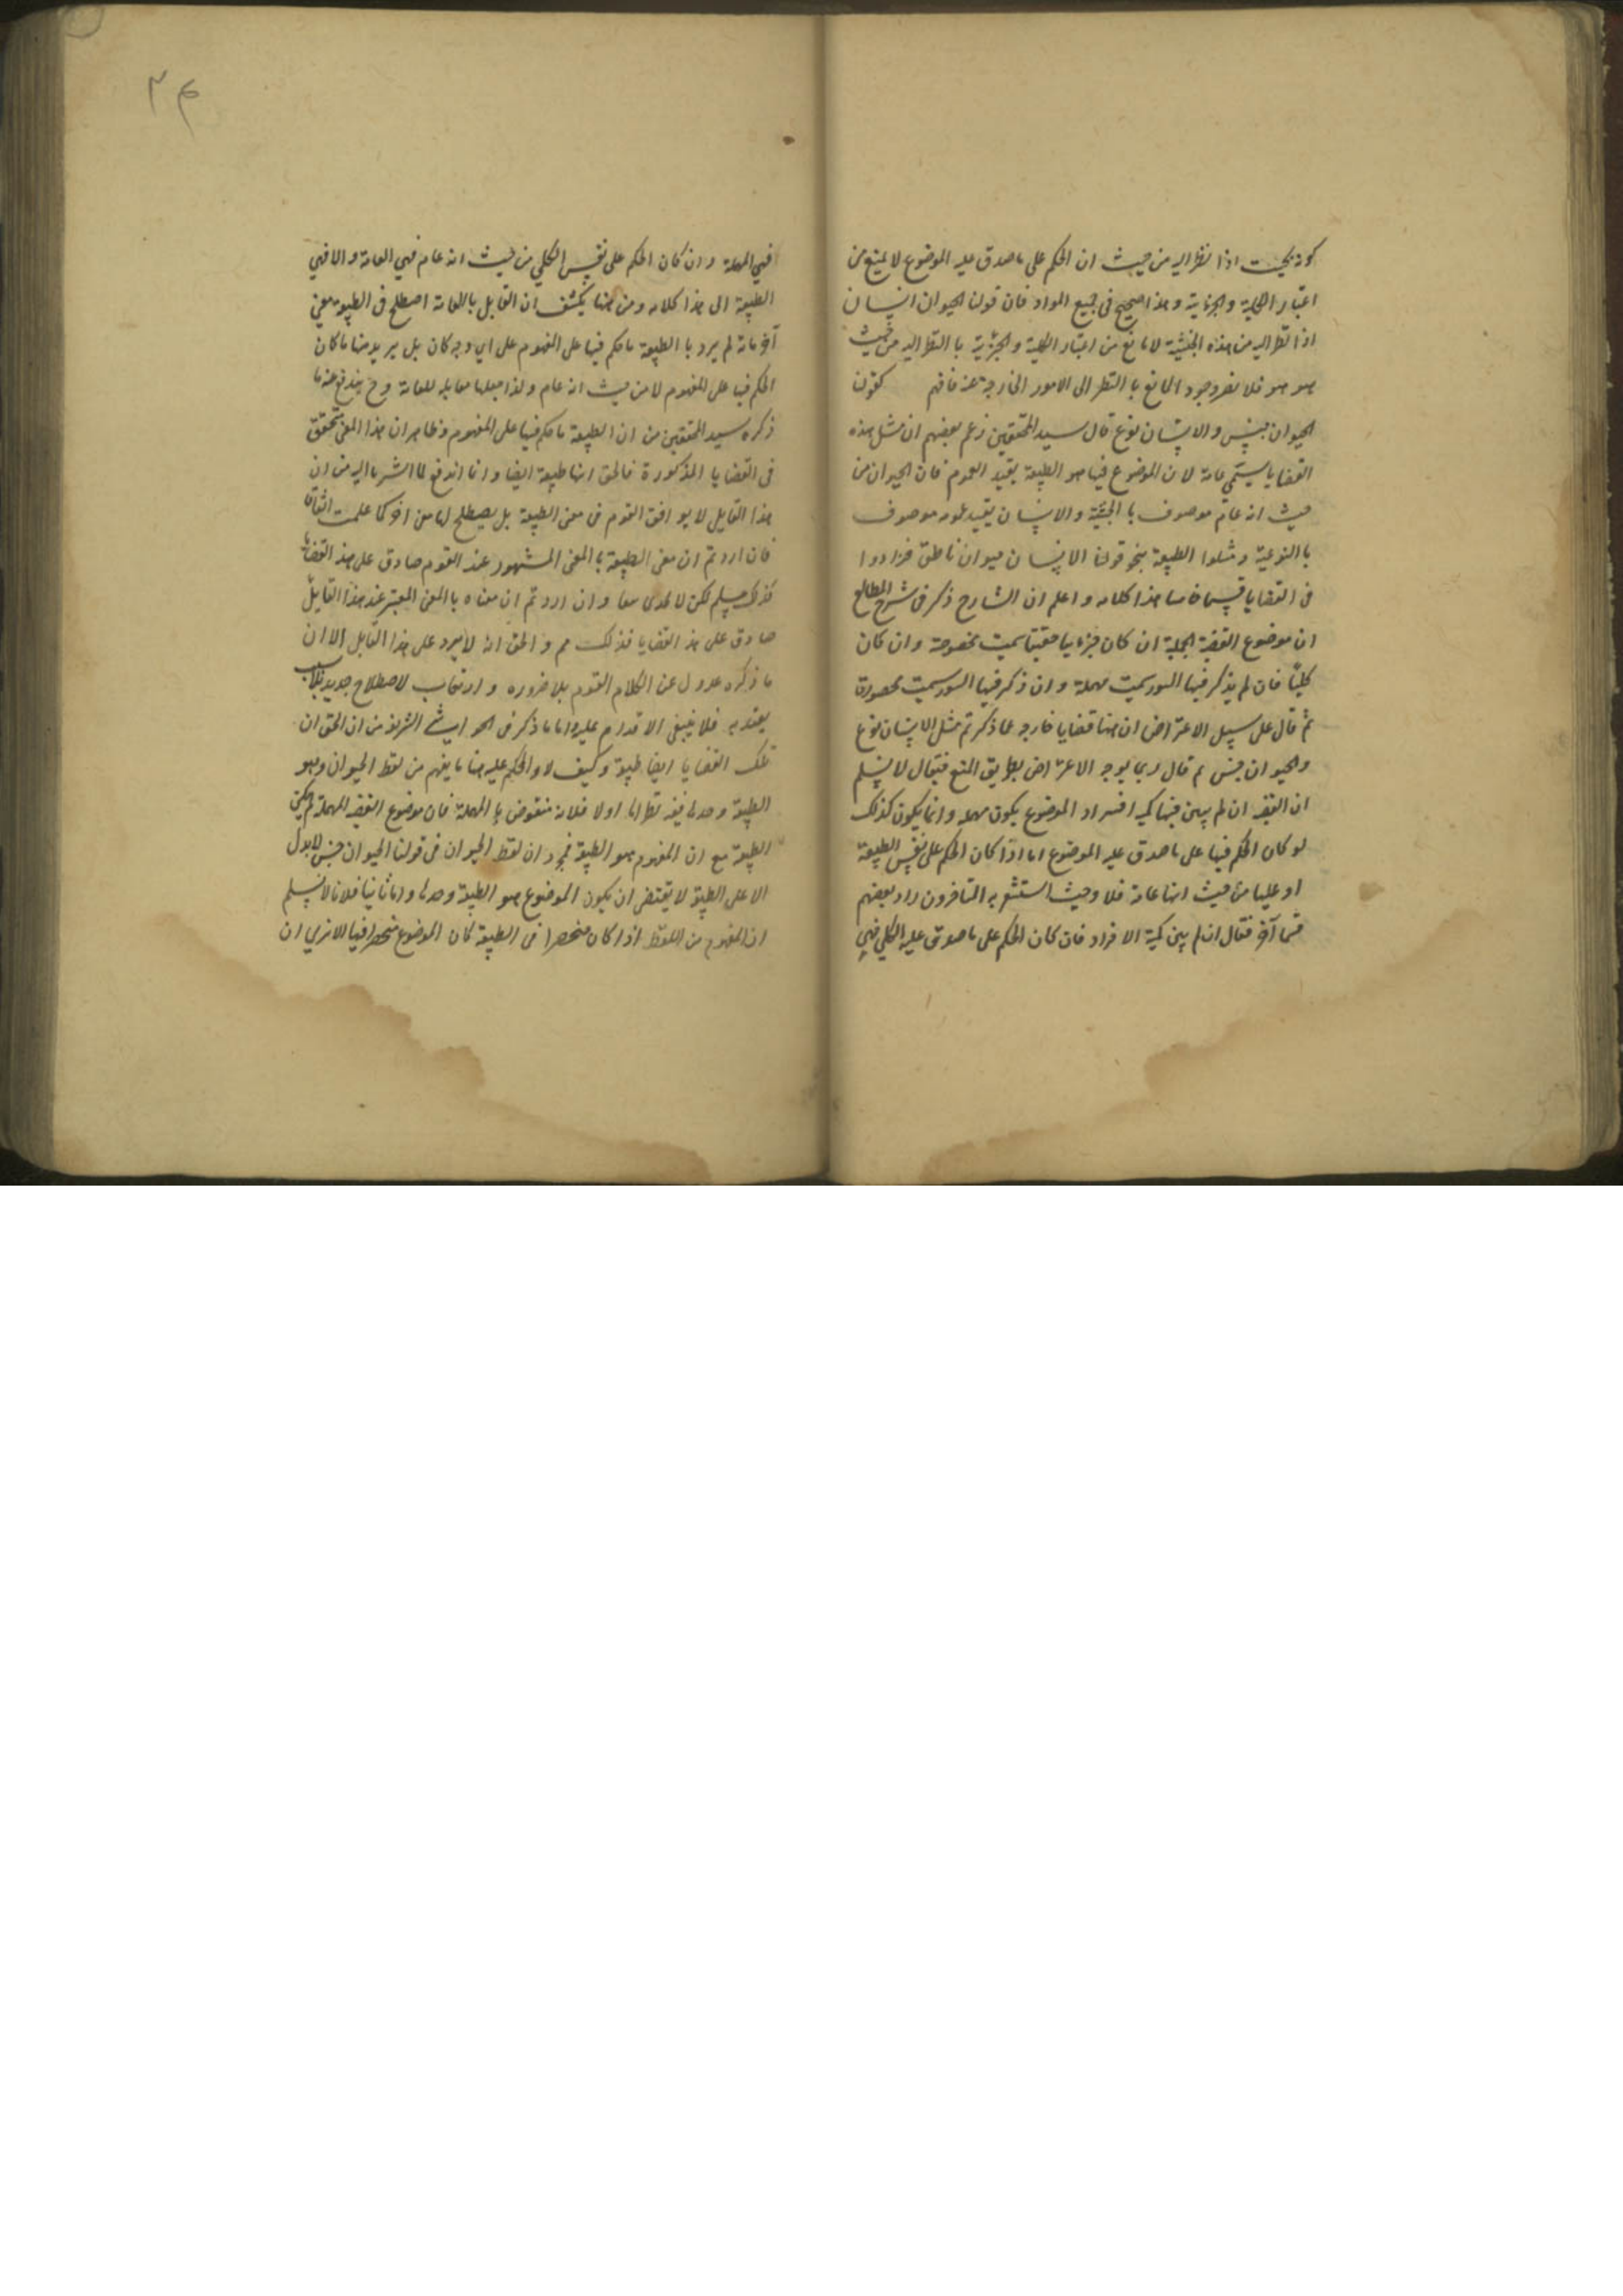 كونه بحيث اذا نظر اليه من حيث ان الحكم على ما صدق عليه الموضوع لا يمنع من
اعتبار الكلية والجزئية وهذا صحيح في جميع المواد فان قولنا الحيوان انسان
اذا نظر اليه من هذه الحيثية لا مانع من اعتبار الكلية والجزئية با النظر اليه من حيث
هو هو فلا يضر وجود المانع با النظر الى الامور الخارجة عنه فافهم كقولنا
الحيوان جنس والانسان نوع قال سيد المحققين زعم بعضهم ان مثل هذه
القضايا يسمى عامة لان الموضوع فيها هو الطبيعة بقيد العموم فان الحيوان من
حيث انه عام موصوف با الجنسية والانسان بقيد عمومه موصوف
با النوعية ومثلوا الطبيعة بنحو قولنا الانسان حيوان ناطق فزادوا
في القضايا قسما خامسا هذا كلامه واعلم ان الشارح ذكر في شرح المطالع
ان موضوع القضية الحملية ان كان جزءيا حقيقيا سميت مخصوصة وان كان
كليًا فان لم يذكر فيها السور سميت مهملة وان ذكر فيها السور سميت محصورة
ثم قال على سبيل الاعتراض ان هنا قضايا خارجه عما ذكرتم مثل الانسان نوع
والحيوان جنس ثم قال ربما يوجه الاعتراض بطريق المنع فيقال لا نسلم
ان القضيه ان لم يبين فيها كميه افراد الموضوع يكون مهمله وانما يكون كذلك
لو كان الحكم فيها على ما صدق عليه الموضوع اما اذا كان الحكم على نفس الطبيعة
او عليها من حيث انها عامة فلا وحيث استشعر به المتاخرون زاد بعضهم
قسما آخر فقال ان لم يبين كمية الافراد فان كان الحكم على ما صدق عليه الكلي فهي
٢٤
فهي المهملة وان كان الحكم على نفس الكلي من حيث انه عام فهي العامة والا فهي
الطبيعة الى هذا كلامه ومن هنا يكشف ان القايل بالعامة اصطلح في الطبيعة معنى
آخر فانه لم يرد با الطبيعة ما حكم فيها على المفهوم على اي وجه كان بل يريد منها ما كان
الحكم فيها على المفهوم لا من حيث انه عام ولذا جعلها مقابله للعامة وح يندفع عنه ما
ذكره سيد المحققين من ان الطبيعة ما حكم فيها على المفهوم وظاهر ان هذا المعنى متحقق
في القضايا المذكورة فالحق انها طبيعة ايضا وانما اندفع لما اشرنا اليه من ان
هذا القايل لا يوافق القوم في معنى الطبيعة بل يصطلح لها معنى اخر كما علمت
فان اردتم ان معنى الطبيعة با المعنى المشهور عند القوم صادق على هذه القضايا
فذلك مسلم لكن لا يجدى نفعا وان اردتم ان معناه با المعنى المعتبر عند هذا القايل
صادق على هذه القضايا فذلك مم والحق انه لا يرد على هذا القايل الا ان
ما ذكره عدول عن الكلام القوم بلا ضروره وارتكاب لاصطلاح جديد
يعتد به فلا ينبغي الاقدام عليه واما ما ذكر في الحواشي الشريفه من ان الحق ان
تلك القضايا ايضا طبيعة وكيف لا والحكم عليه هنا ما يفهم من لفظ الحيوان وهو
الطبيعة وحدها ففيه نظر اما اولا فلانه منقوض با المهملة فان موضوع القضيه المهملة
الطبيعة مع ان المفهوم هو الطبيعة فمجرد ان لفظ الحيوان في قولنا الحيوان جنس لا يدل
الا على الطبيعة لا يقتضى ان يكون الموضوع هو الطبيعة وحدها واما ثانيا فلانا لا نسلم
ان المفهوم من اللفظ اذا كان منحصرا في الطبيعة كان الموضوع منحصرا فيها الا ترى ان